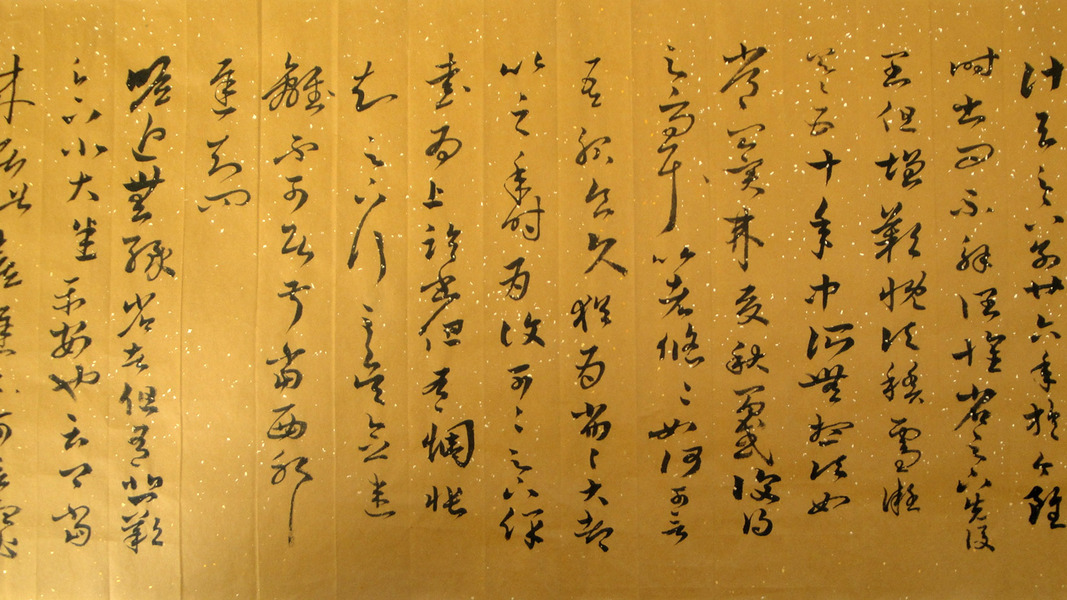 計與足下別廿六年於今雖
時書問不解闊懷省足下先後
二書但增歎慨頃積雪凝
寒五十年中所無想頃如
常冀來夏秋間或復得
足下問耳比者悠悠如何可言
吾服食久猶為劣劣大都
比之年時為復可可足下保
愛為上臨書但有惆悵
知足下行至吳念違
離不可居叔當西耶
遲知問
瞻近無緣省告但有悲歎
足下小大悉平安也云卿當
來居此喜遲不可言想